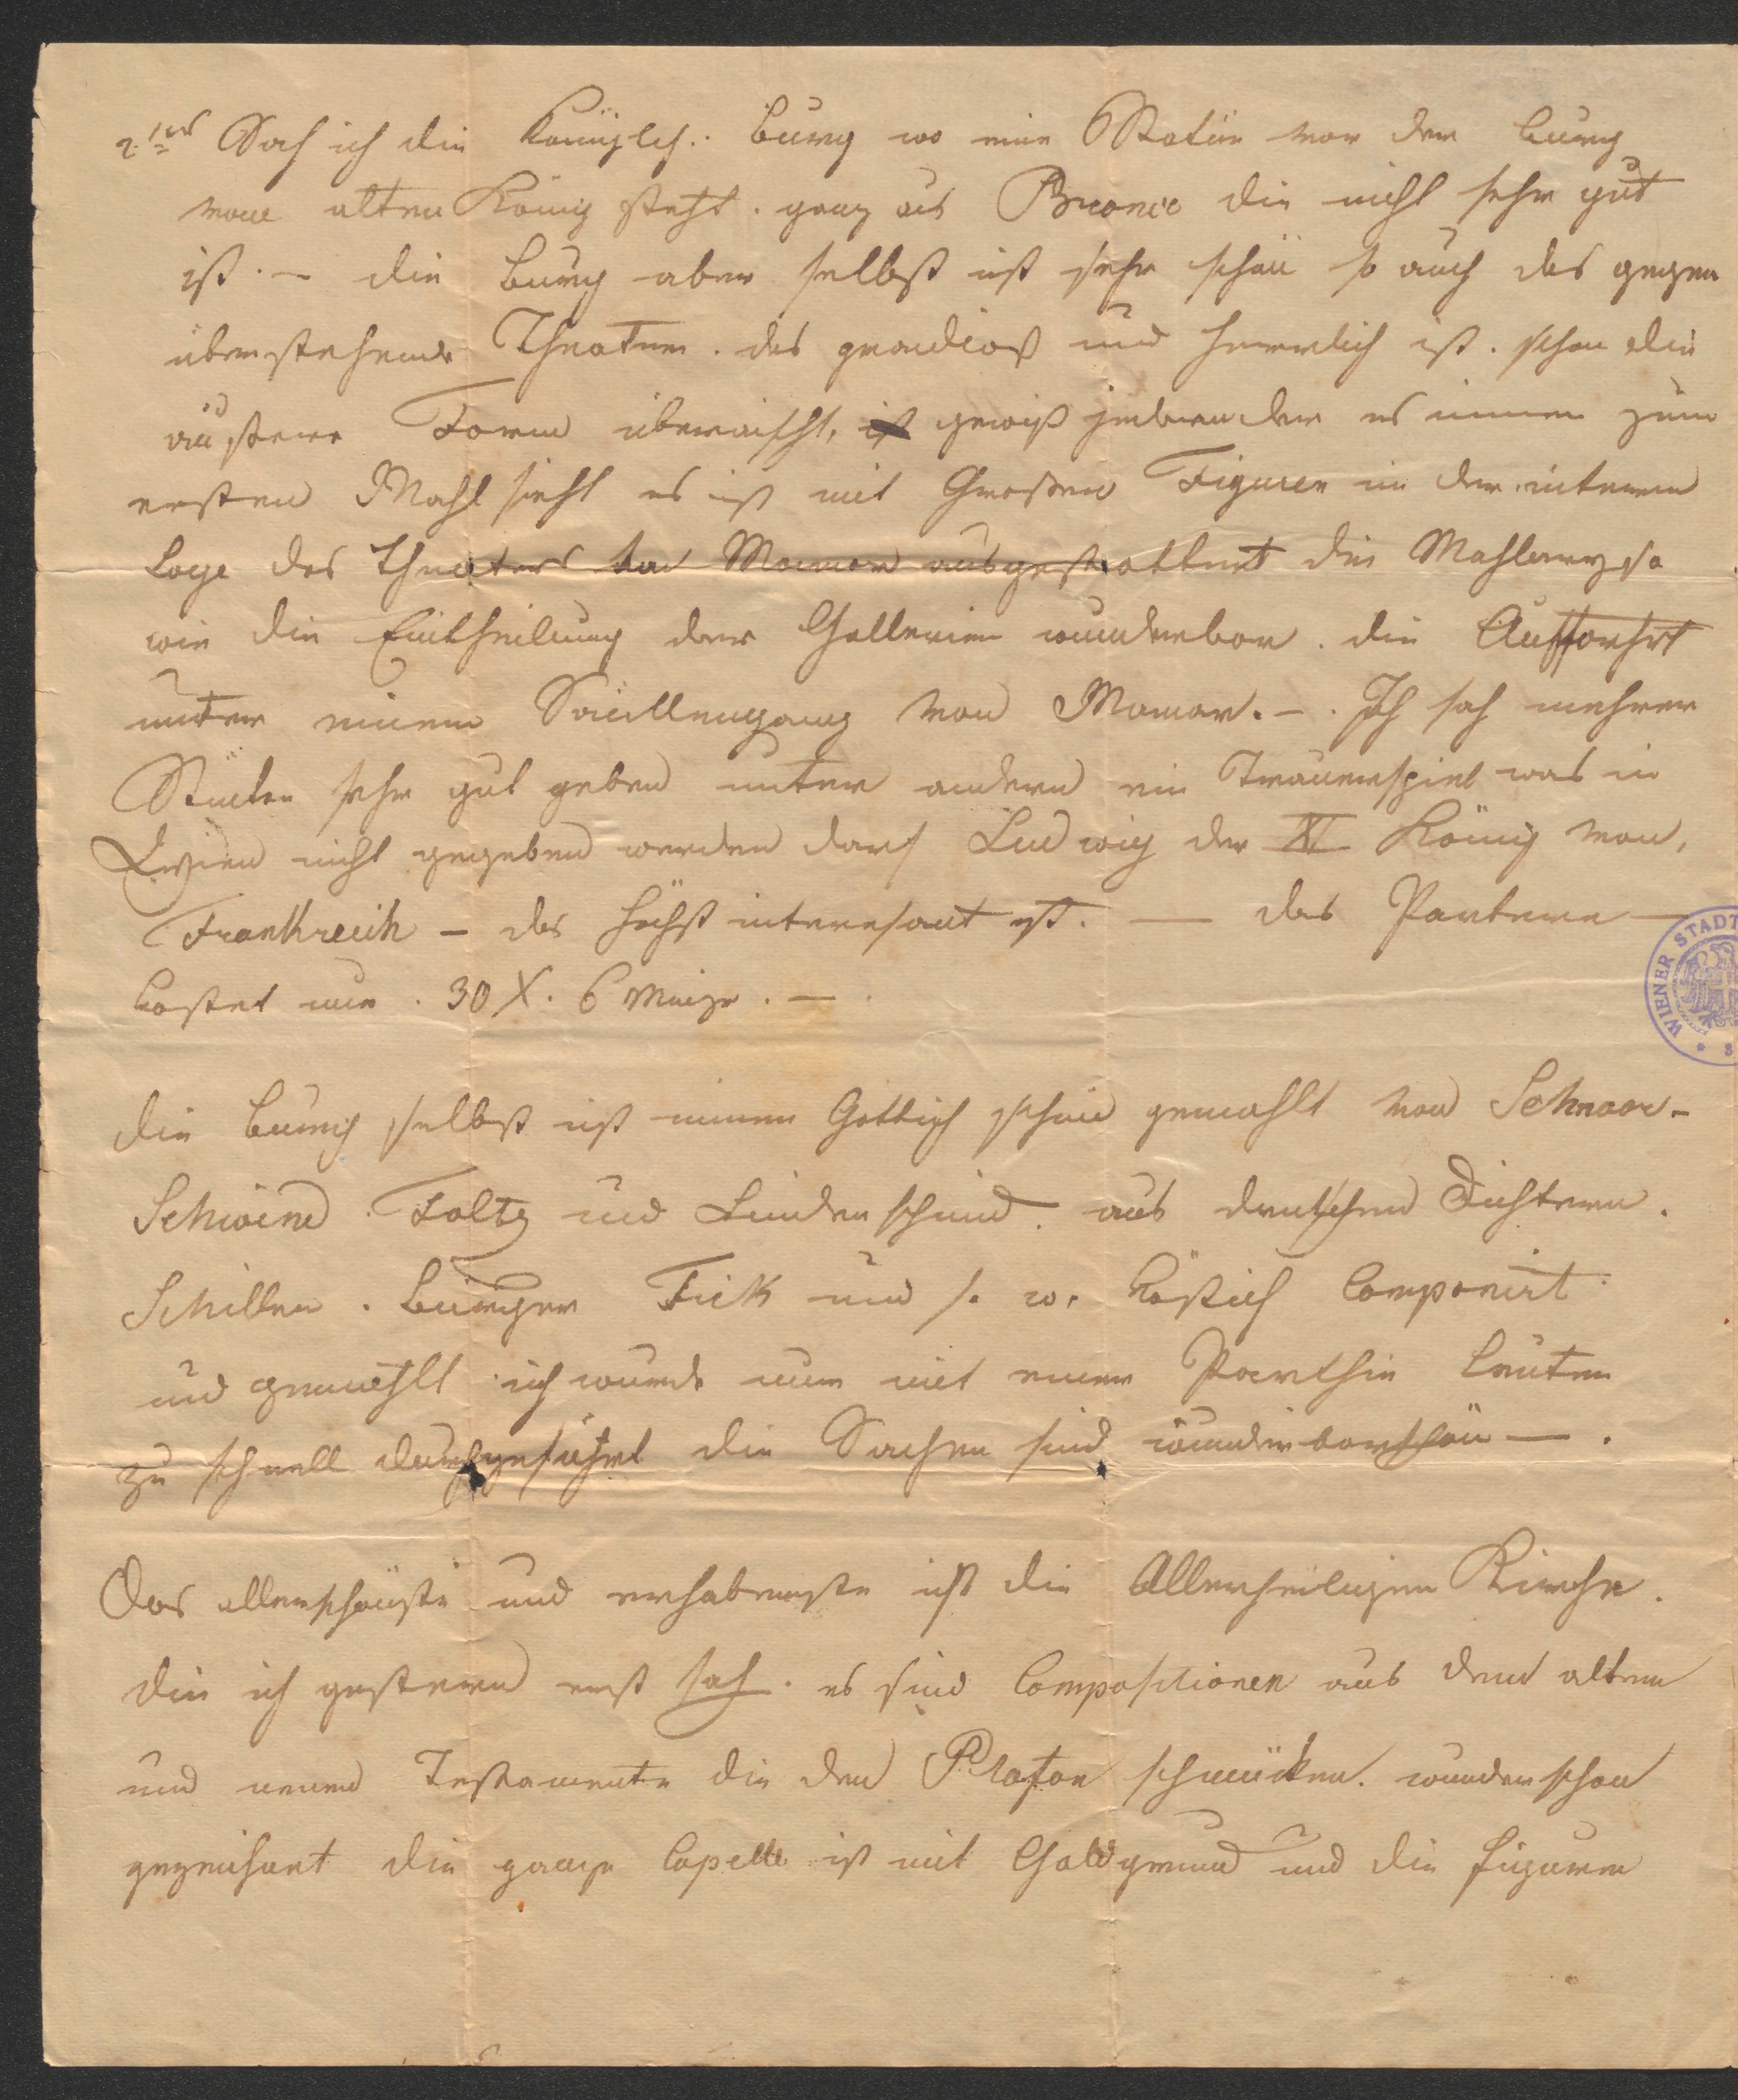 2.tens Sah ich die Königlch. Burg wo eine Statüe vor der Burg
vom alten König steht. ganz aus Bronce die nicht sehr gut
ist. – die Burg aber selbst ist sehr schön so auch das gegen
überstehende Theater. das grandios und herrlich ist. schon die
äußere Form überrascht, ist gewiß jedem der es immer zum
ersten Mahl sieht es ist mit Großen Figuren in der
Loge des Theaters von Mamor ausgestattnet die Mahlerey so
wie die Eintheilung der Gallerien wunderbar. die Auffarth
unter einem Säullengang von Mamor. – . Ich sah mehrer
Stücke sehr gut geben unter andern ein Trauerspiel was in
Wien nicht gegeben werden darf Ludwig der XI König von,
Frankreich – das höchst interesant ist. — das Partere —
kostet nur . 30 X. C Münze . — .
die Burg selbst ist innen Gottlich schön gemahlt von Schnoor-
Schwind . Foltz und Lindenschmid. aus deutschen Dichtern.
Schiller . Bürger Tick und s. w. köstlich Componirt
und gemahlt ich wurde nur mit einer Parthie Leuten
zu schnell durchgeführt die Sachen sind wunderbarschön — .
Das allerschönste und erhabenste ist die Allerheiligen Kirche.
die ich gestern erst sah. es sind Compositionen aus dem alten
und neuen Testamente die den Plafon schmücken. wunderschön
gezeichnet die ganze Capelle ist mit Goldgrund und die Figuren
WIENER STADT